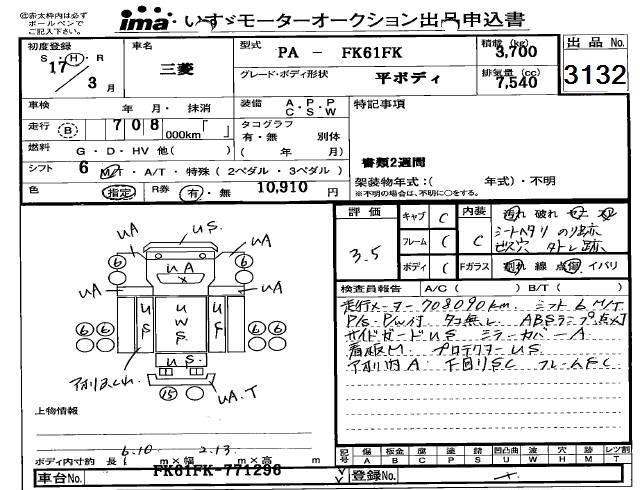 ㊟赤太枠内は必ず
ボールペンで
ご記入下さい。
ima・いすゞモーターオークション出品申込書
初度登録
S・H・R
17
3月
車名
三菱
型式 PA - FK61FK
グレード・ボディ形状 平ボディ
積載(kg)
3,700
排気量(cc)
7,540
出品No.
3132
車検 年 月・抹消
走行 B 708 000km「 」
燃料 G・D・HV 他( )
シフト 6 M/T・A/T・特殊(2ペダル・3ペダル)
色 指定 R券 有・無 10,910円
装備 A・P・P
C S W
タコグラフ
有・無 別体
( 年 月)
特記事項
書類2週間
架装物年式:( 年式)・不明
※不明の場合は、不明に○をする。
評価
3.5
キャブ C
フレーム C
ボディ C
内装
C
汚れ 破れ
シートヘタリ のり跡
ビス穴 タトレ跡
Fガラス 割れ 線 点 傷 イバリ
検査員報告 A/C( ) B/T( )
走行メーター708090km シフト6M/T
P/S・P/W付 タコ無し ABSランプ点灯
サイドガードUS ミラーカバーA
看板M プロテクターUS
アオリ内A 下回りSC フレームSC
US
UA
UA
6
6
UA
UA
UA
US
UWS
US
6 6
6 6
US.
15
UA.T
上物情報
6.10 2.13
ボディ内寸約 長 m×幅 m×高 m
車台No. FK61FK-771296
記号
傷 A
板金 B
腐 C
塗 P
錆 S
凹凸曲 U
波 W
穴 H
跡 M
レツ割 T
登録No.